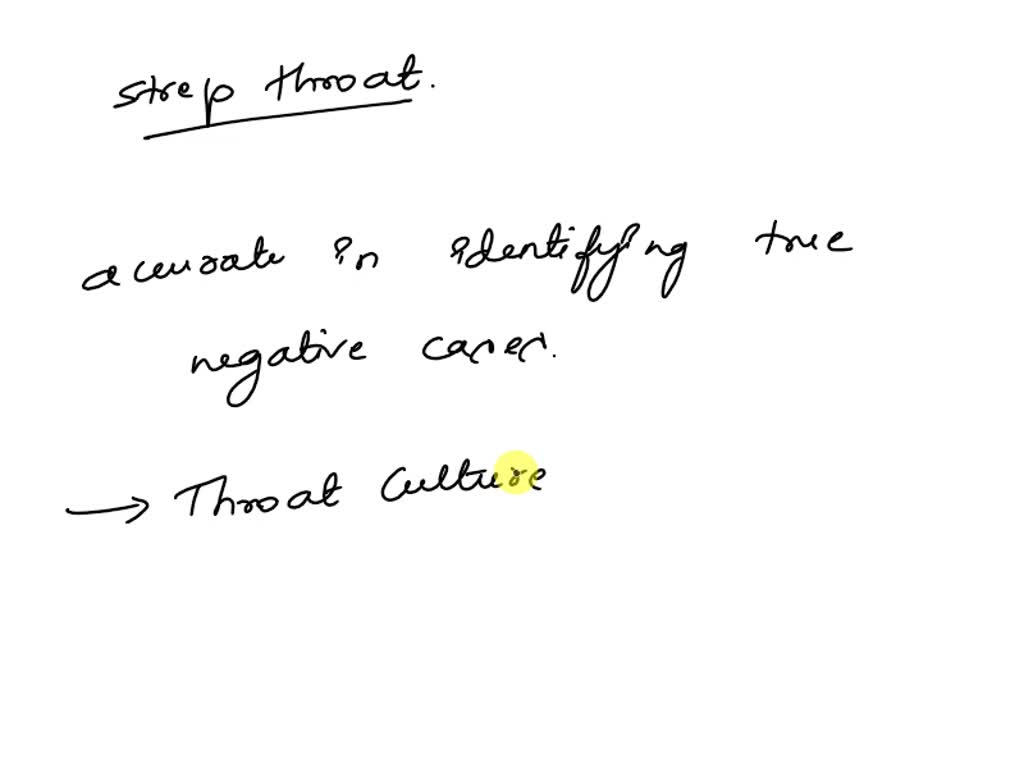 strep throat.
accurate in identifying true
negative cases.
→ Throat Culture